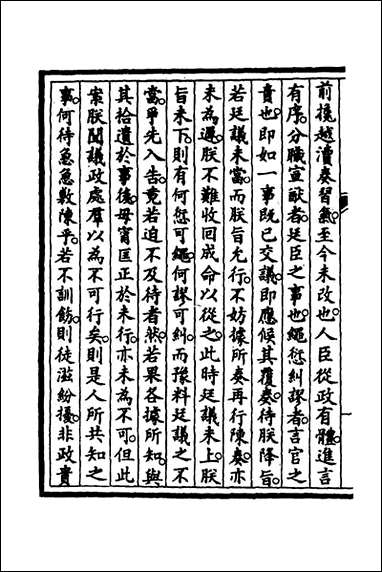 前攙越瀆奏習氣至今未改也人臣從政有體進言
有序分職宣猷者廷臣之事也繩愆糾謬者言官之
責也即如一事既已交議即應候其覆奏待朕降旨
若廷議未當而朕旨允行不妨據所奏再行陳奏亦
未為遲朕不難收回成命以從之此時廷議未上朕
旨未下則有何愆可繩何謬可糾而豫料廷議之不
當爭先入告竟若迫不及待者然若果各據所知與
其拾遺於事後毋寧匡正於未行亦未為不可但此
案朕聞議政處羣以為不可行矣則是人所共知之
事何待急急敷陳乎若不訓飭則徒滋紛擾非政貴